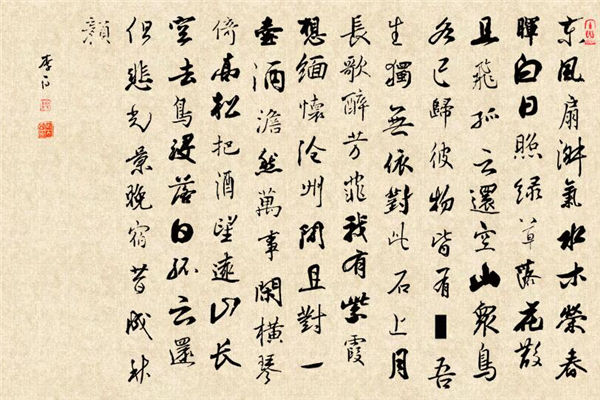 东風扇淑氣水木榮春
暉白日照绿草落花散
且飛孤云還空山眾鳥
各已歸彼物皆有■吾
生獨無依對此石上月
長歌醉芳菲我有紫霞
想緬懷滄州間且對一
壺酒澹然萬事閑橫琴
倚高松把酒望遠山長
空去鳥没落日孤云還
但悲光景晚宿昔成秋
顏
李白